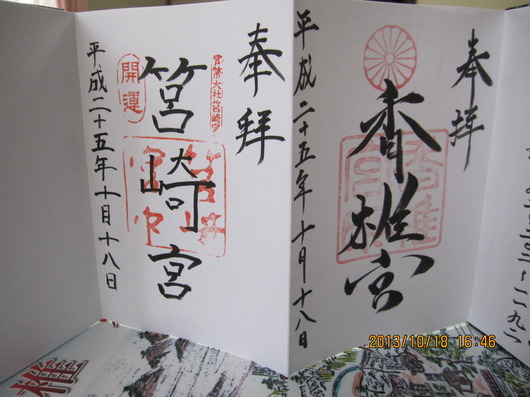 奉拝
香椎宮
平成二十五年十月十八日
奉拝
官幣大社筥崎宮
筥崎宮
開運
平成二十五年十月十八日
椎
2013/10/18 16:46